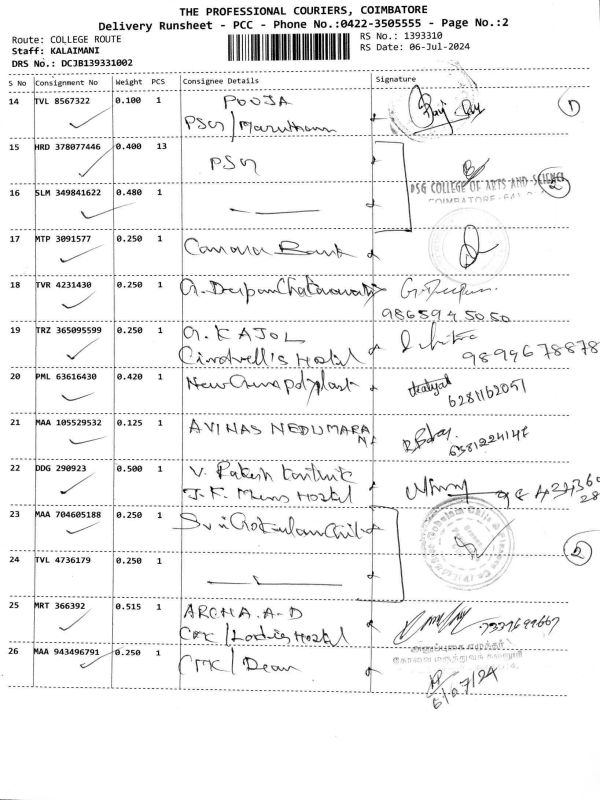 THE PROFESSIONAL COURIERS, COIMBATORE
Delivery Runsheet - PCC - Phone No.:0422-3505555 - Page No.:2
Route: COLLEGE ROUTE
Staff: KALAIMANI
DRS No.: DCJB139331002
RS No.: 1393310
RS Date: 06-Jul-2024
S No Consignment No Weight PCS Consignee Details Signature
14 TVL 8567322 0.100 1 POOJA
PSG/
15 HRD 378077446 0.400 13 PSG
PSG COLLEGE OF ARTS AND SCIENCE
COIMBATORE
2
16 SLM 349841622 0.480 1
17 MTP 3091577 0.250 1 Canara Bank
18 TVR 4231430 0.250 1 G. Deepan Chakaravarthy G. Deepan
9865945050
19 TRZ 365095599 0.250 1 G. KAJOL
Hostel
20 PML 63616430 0.420 1 6281162051
21 MAA 105529532 0.125 1 AVINAS NEDUMARAN
6381224147
22 DDG 290923 0.500 1 V. Rakesh Karthik
Mens Hostel
23 MAA 704605188 0.250 1 Sri Gokulam Chit
2
24 TVL 4736179 0.250 1
25 MRT 366392 0.515 1 ARCHA. A-D
CMC/Ladies Hostel
26 MAA 943496791 0.250 1 CMC/Dean
6/07/24